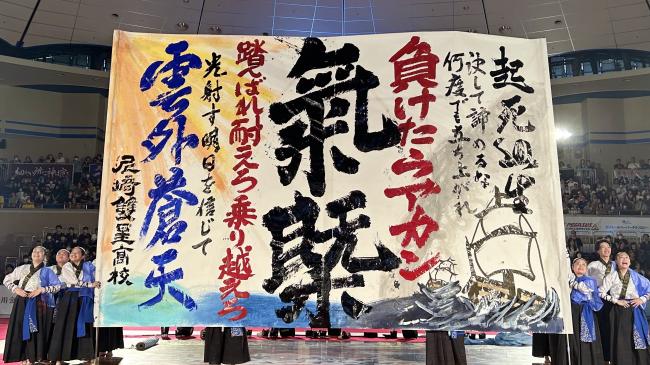 起死廻生
決して諦めるな
何度でも立ち上がれ
負けたらアカン
氣槩
踏んばれ耐えろ乗り越えろ
光射す明日を信じて
雲外蒼天
尼崎雙星高校